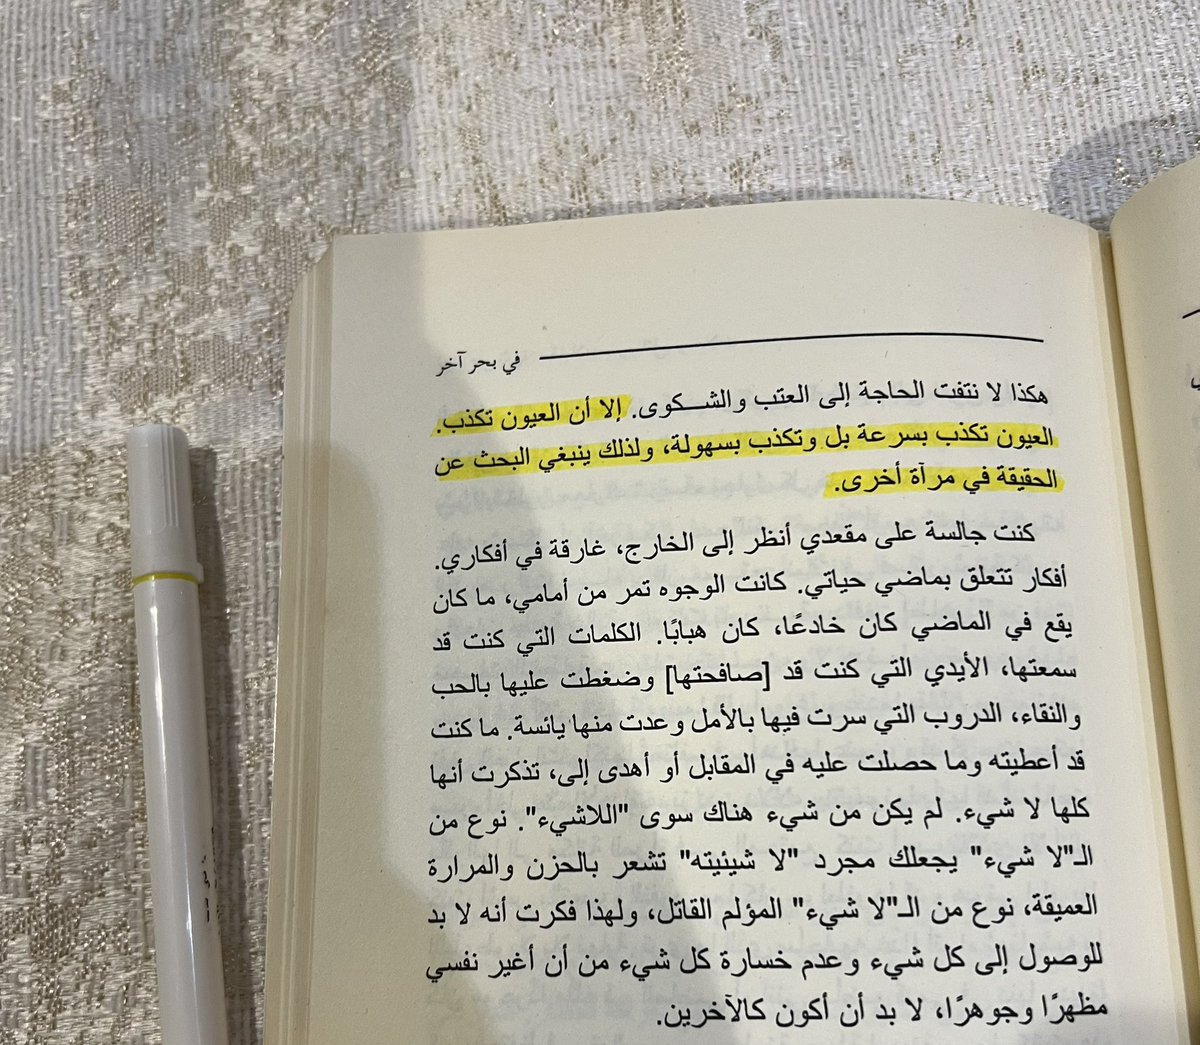 في بحر آخر
هكذا لا نتفت الحاجة إلى العتب والشكوى. إلا أن العيون تكذب.
العيون تكذب بسرعة بل وتكذب بسهولة، ولذلك ينبغي البحث عن
الحقيقة في مرآة أخرى.
كنت جالسة على مقعدي أنظر إلى الخارج، غارقة في أفكاري.
أفكار تتعلق بماضي حياتي. كانت الوجوه تمر من أمامي، ما كان
يقع في الماضي كان خادعًا، كان هبابًا. الكلمات التي كنت قد
سمعتها، الأيدي التي كنت قد [صافحتها] وضغطت عليها بالحب
والنقاء، الدروب التي سرت فيها بالأمل وعدت منها يائسة. ما كنت
قد أعطيته وما حصلت عليه في المقابل أو أهدى إلى، تذكرت أنها
كلها لا شيء. لم يكن من شيء هناك سوى "اللاشيء". نوع من
الـ"لا شيء" يجعلك مجرد "لا شيئيته" تشعر بالحزن والمرارة
العميقة، نوع من الـ"لا شيء" المؤلم القاتل، ولهذا فكرت أنه لا بد
للوصول إلى كل شيء وعدم خسارة كل شيء من أن أغير نفسي
مظهرًا وجوهرًا، لا بد أن أكون كالآخرين.